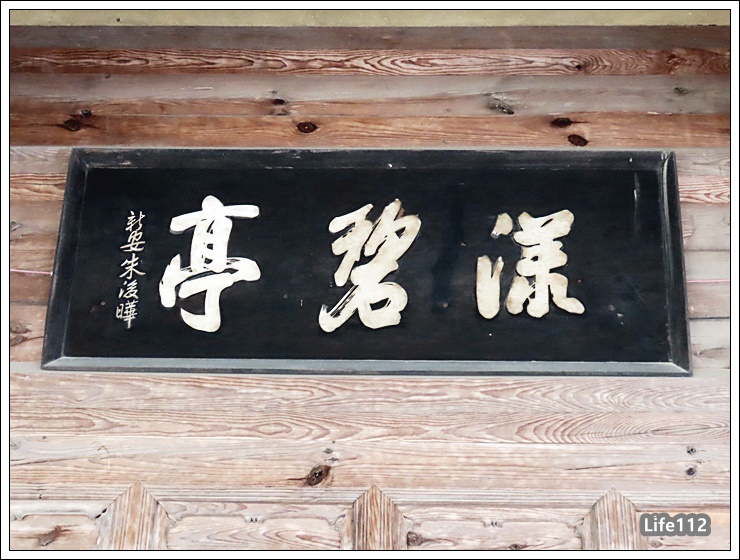 漾碧亭
新安朱浚曄
Life112